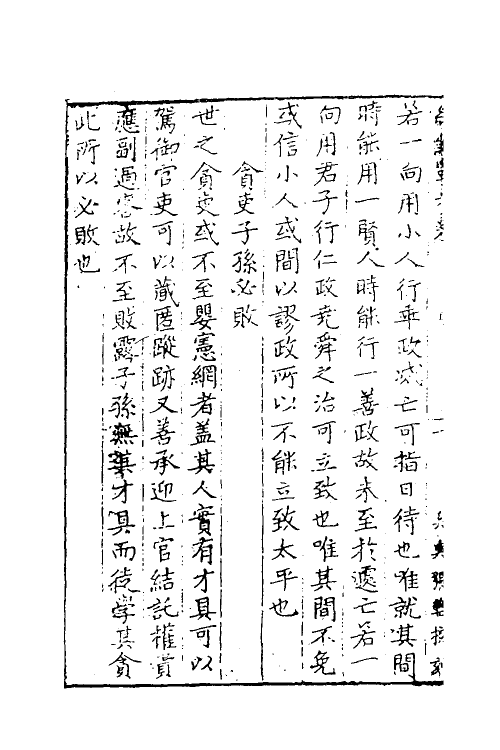 若一向用小人行乖政滅亡可指日待也唯就其間
時能用一賢人時能行一善政故未至於遽亡若一
向用君子行仁政堯舜之治可立致也唯其間不免
或信小人或間以謬政所以不能立致太平也
貪吏子孫必敗
世之貪吏或不至嬰憲網者盖其人實有才具可以
駕御官吏可以藏匿蹤跡又善承迎上官結託權貴
應副過客故不至敗露子孫無其才具而徒學其貪
此所以必敗也